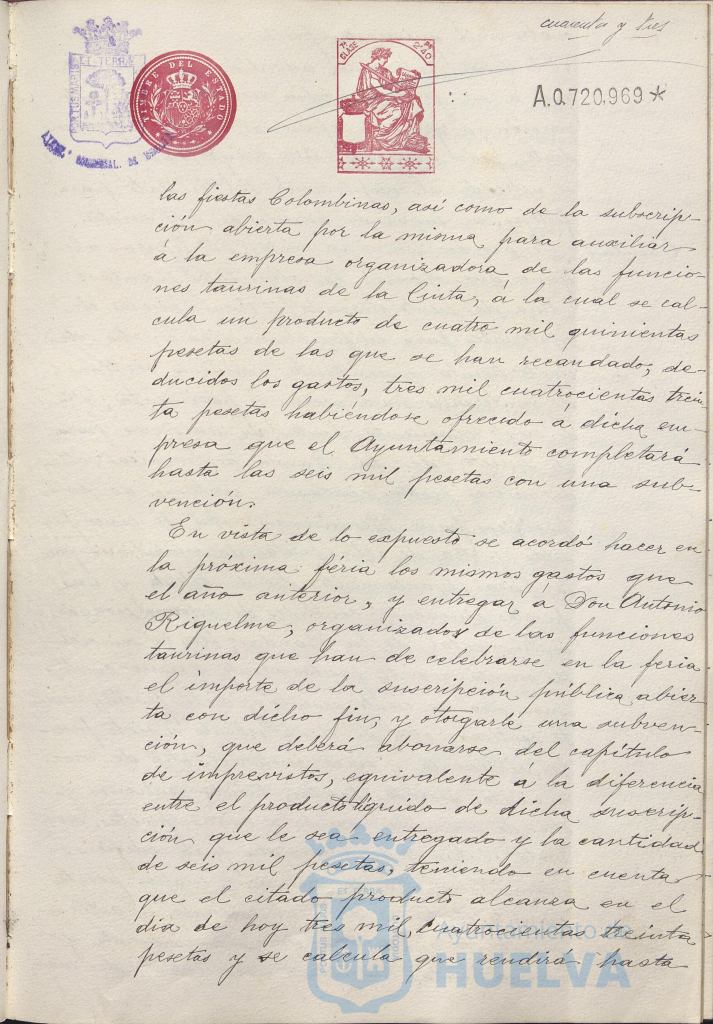 cuarenta y tres
PORTUS MARIS ET TERRÆ CUSTODIA
TIMBRE DEL ESTADO
7ª CLASE
2'40
A.0.720,969*
las fiestas Colombinas, así como de la subscrip-
ción abierta por la misma para auxiliar
á la empresa organizadora de las funcio-
nes taurinas de la Cinta, á la cual se cal-
cula un producto de cuatro mil quinientas
pesetas de las que se han recaudado, de-
ducidos los gastos, tres mil cuatrocientas trein-
ta pesetas habiéndose ofrecido á dicha em-
presa que el Ayuntamiento completará
hasta las seis mil pesetas con una sub-
vención.
En vista de lo expuesto se acordó hacer en
la próxima féria los mismos gastos que
el año anterior, y entregar á Don Antonio
Riquelme, organizador de las funciones
taurinas que han de celebrarse en la feria
el importe de la suscripción pública abier-
ta con dicho fin, y otorgarle una subven-
ción, que deberá abonarse del capítulo
de imprevistos, equivalente á la diferencia
entre el producto líquido de dicha suscrip-
ción que le sea entregado y la cantidad
de seis mil pesetas, teniendo en cuenta
que el citado producto alcanza en el
dia de hoy tres mil cuatrocientas treinta
pesetas y se calcula que rendirá hasta
Ayuntamiento de
HUELVA